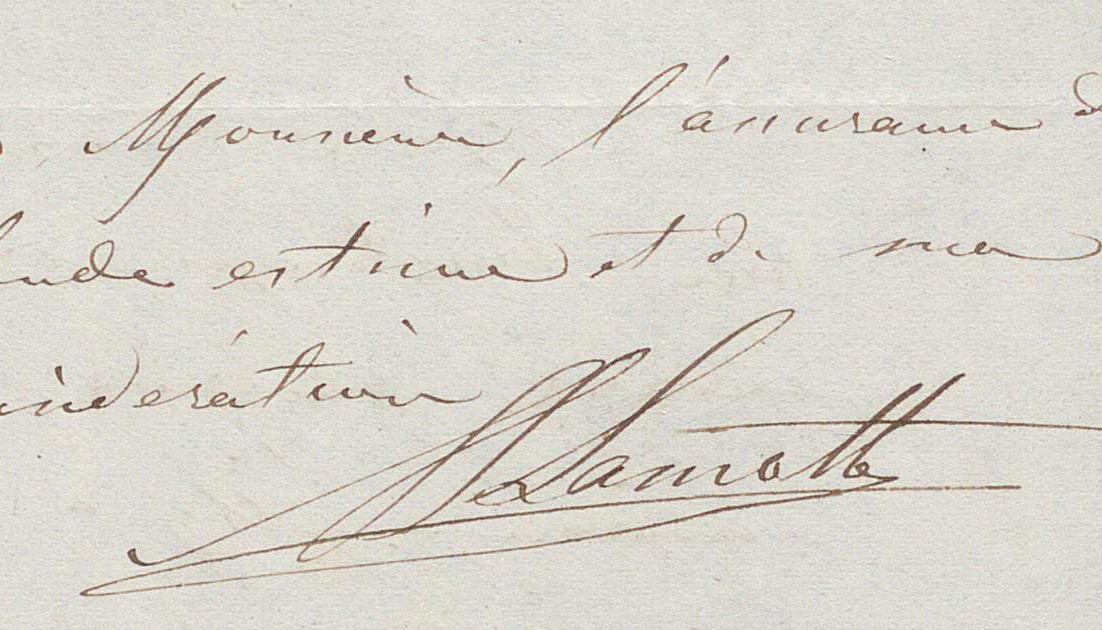 Monsieur, l'assurance d
onde estime et de ma
nsidération
Lamotte